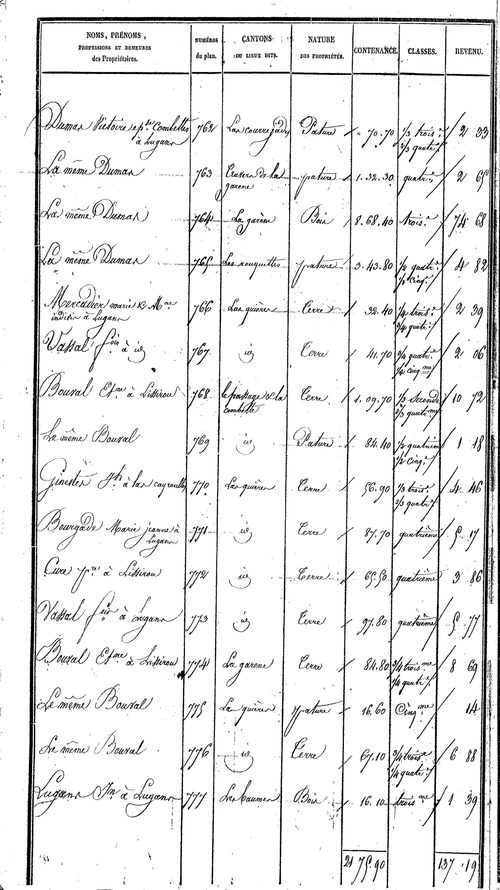 NOMS, PRÉNOMS, PROFESSIONS ET DEMEURES des Propriétaires. | NUMÉROS du plan. | CANTONS OU LIEUX DITS. | NATURE DES PROPRIÉTÉS. | CONTENANCE. | CLASSES. | REVENU.
Dumas Victoire ép.se Combettes à Lugans 762 Las courrejades Pature " 70.70 1/3 trois.e 2/3 quatr.e 2 33
La même Dumas 763 de la garene pature 1.32.30 quatr.e 2 65
La même Dumas 764 La garène Bois 8.68.40 trois.e 74 68
La même Dumas 765 Les rouquettes pature 3.43.80 1/2 quatr.e 1/2 cinq.e 4 82
Mercadier marie à Lugans 766 Las quières Terre 32.40 1/4 trois.e 3/4 quatr.e 2 39
Vassal à id 767 id Terre 41.70 quatr.e cinq.me 2 06
Bouval Et.ne à Lissirou 768 le passage de la combette Terre 1.09.70 1/3 Seconde 2/3 quatr.me 10 72
Le même Bouval 769 id Pature 84.40 1/2 quatrième 1/2 cinq.e 1 18
Ginestes à las cayrouses 770 Las quières Terre 56.90 1/3 trois.e 2/3 quatr.e 4 46
Bourgade Marie jeanne à Lugans 771 id Terre 87.70 quatrième 5 17
Cure à Lissirou 772 id Terre 65.50 quatrième 3 86
Vassal à Lugans 773 id Terre 97.80 quatrième 5 77
Bouval Et.ne à Lissirou 774 La garene Terre 84.80 3/4 trois.me 1/4 quatr.e 8 69
Le même Bouval 775 Las quières pature 16.60 Cinq.me 14
Le même Bouval 776 id Terre 67.10 3/4 trois.e 1/4 quatr.e 6 88
Lugans Jn à Lugans 777 Las baumes Bois 16.10 trois.me 1 39
21 75.90 137.19